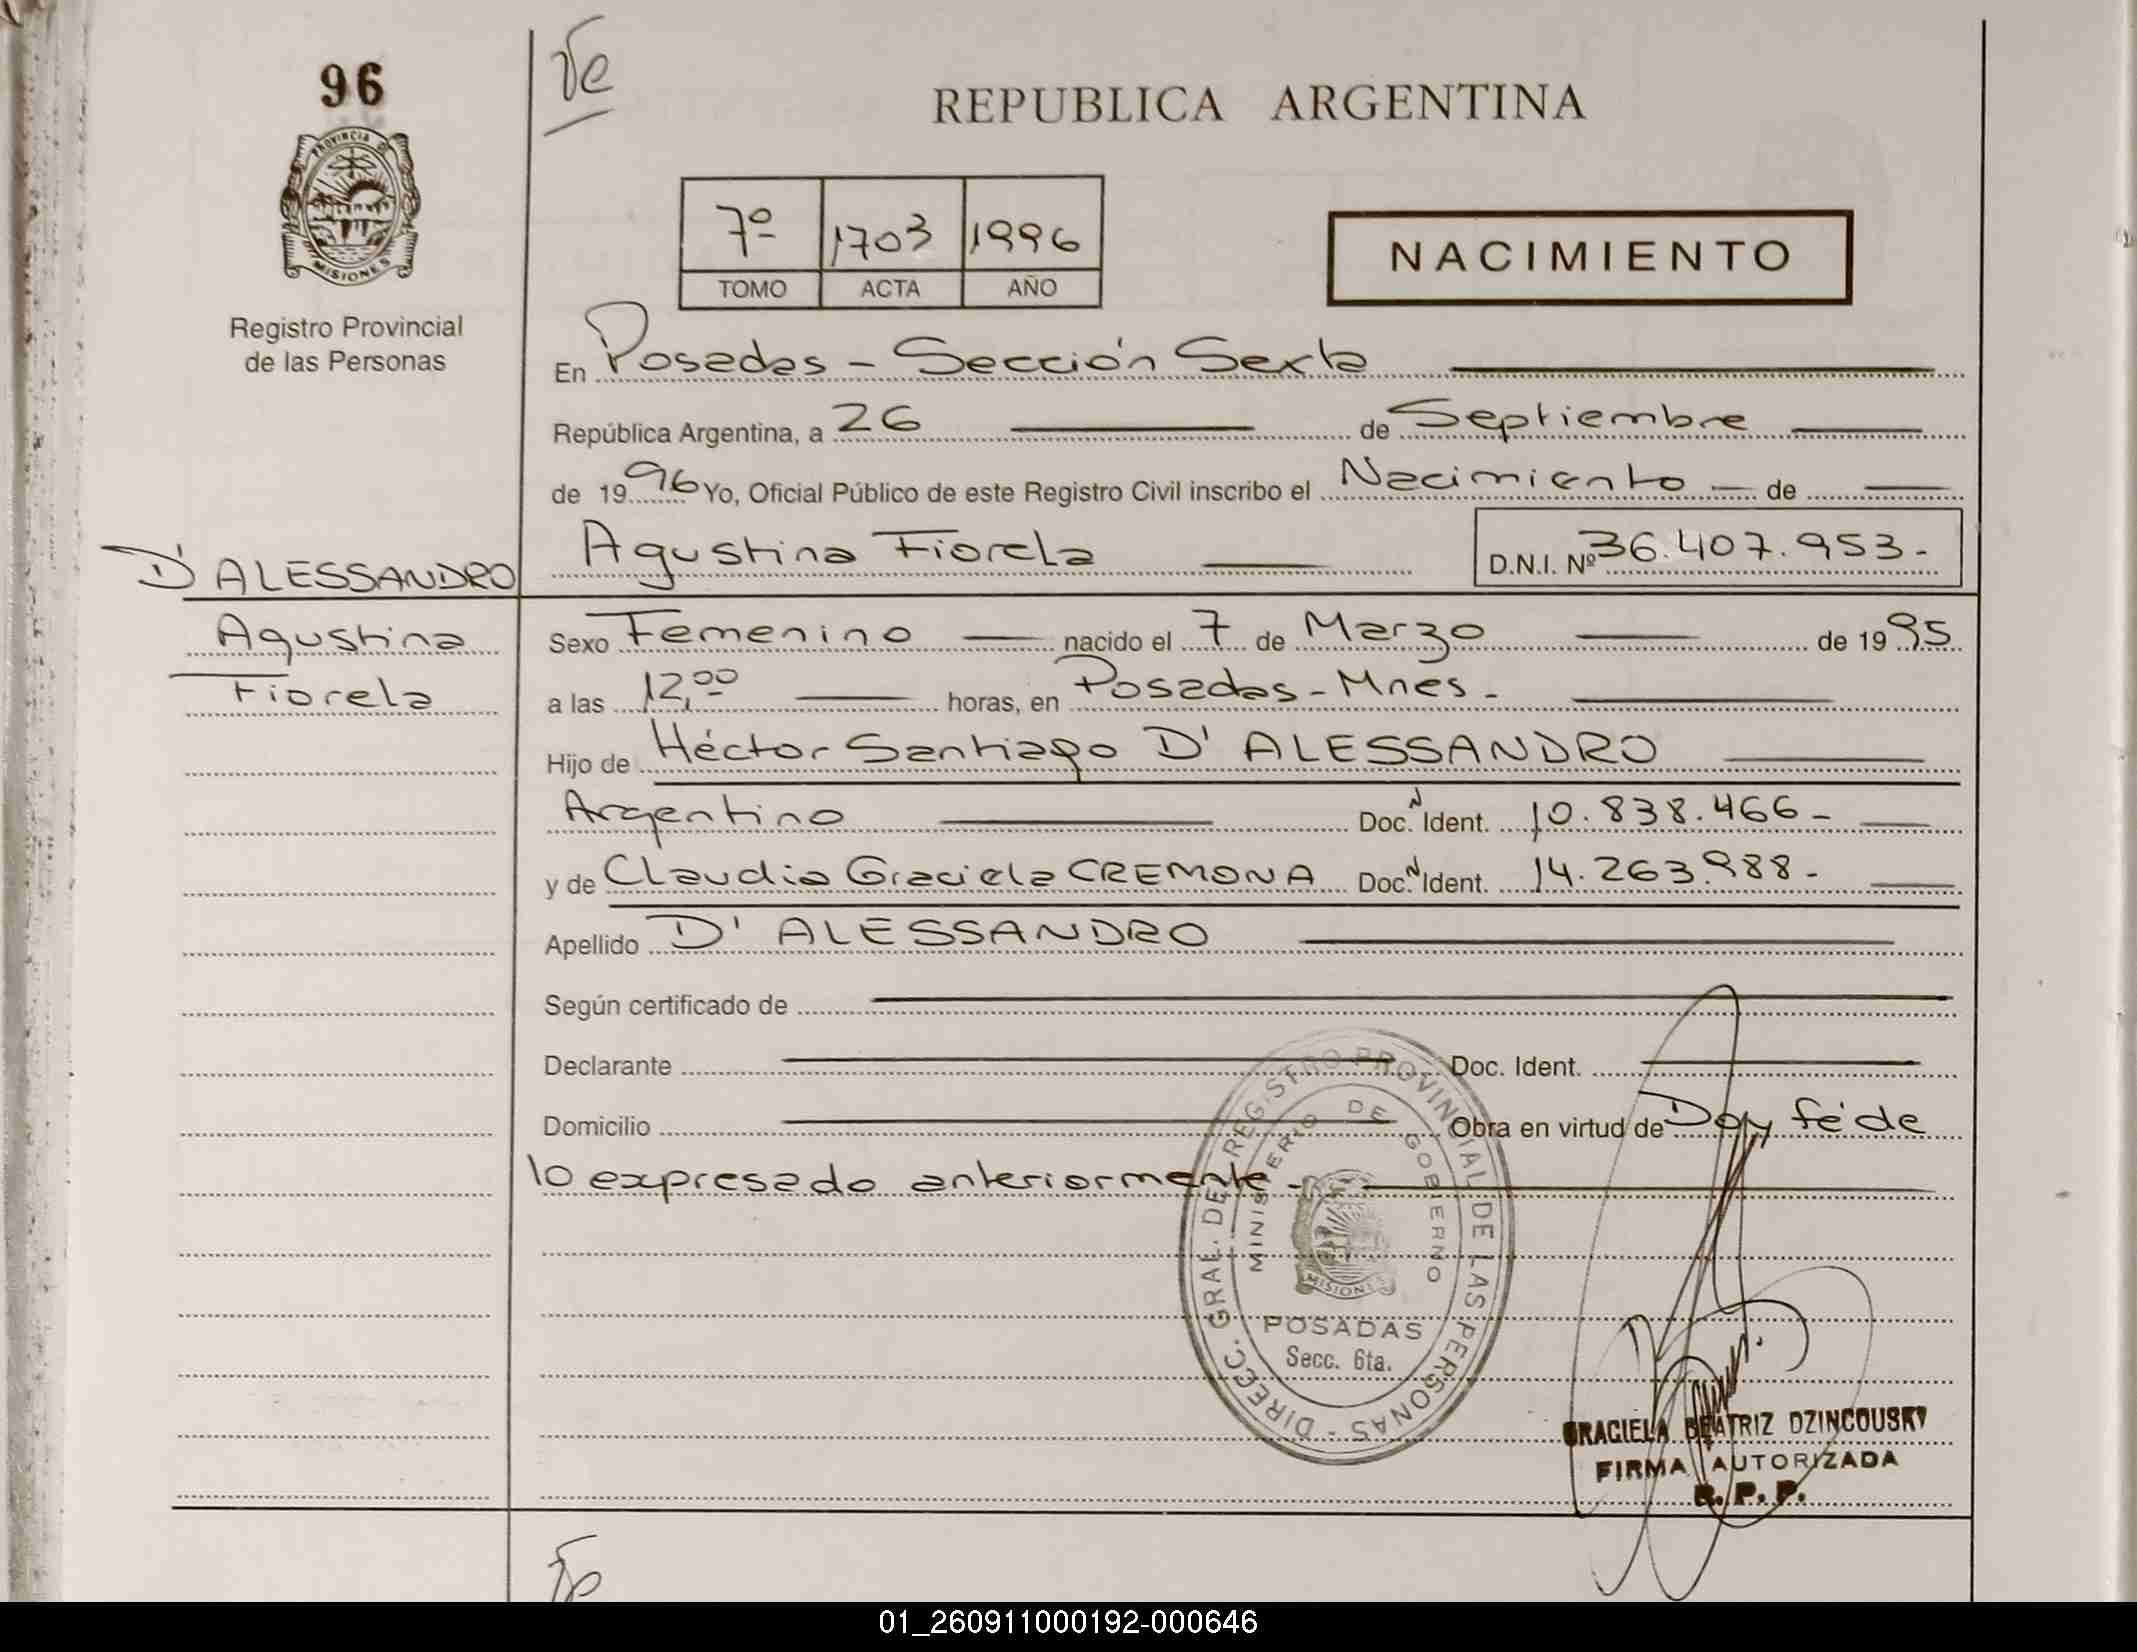 96
Ve
REPUBLICA ARGENTINA
PROVINCIA DE
MISIONES
Registro Provincial
de las Personas
7º 1703 1996
TOMO ACTA AÑO
NACIMIENTO
En Posadas - Sección Sexta
República Argentina, a 26 de Septiembre
de 1996 Yo, Oficial Público de este Registro Civil inscribo el Nacimiento - de
Agustina Fiorela D.N.I. Nº 36.407.953.-
D'ALESSANDRO
Agustina
Fiorela
Sexo Femenino nacido el 7 de Marzo de 1995
a las 12,00 horas, en Posadas - Mnes.-
Hijo de Héctor Santiago D'ALESSANDRO
Argentino Doc. N Ident. 10.838.466-
y de Claudia Graciela CREMONA Doc. N Ident. 14.263.988-
Apellido D'ALESSANDRO
Según certificado de
Declarante Doc. Ident.
Domicilio Obra en virtud de Doy fé de
lo expresado anteriormente.-
DIRECC. GRAL. DE REG.STRO PROVINCIAL DE LAS PERSONAS -
MINISTERIO DE GOBIERNO
MISIONES
POSADAS
Secc. 6ta.
GRACIELA BEATRIZ DZINCOUSKY
FIRMA AUTORIZADA
R.P.P.
01_260911000192-000646